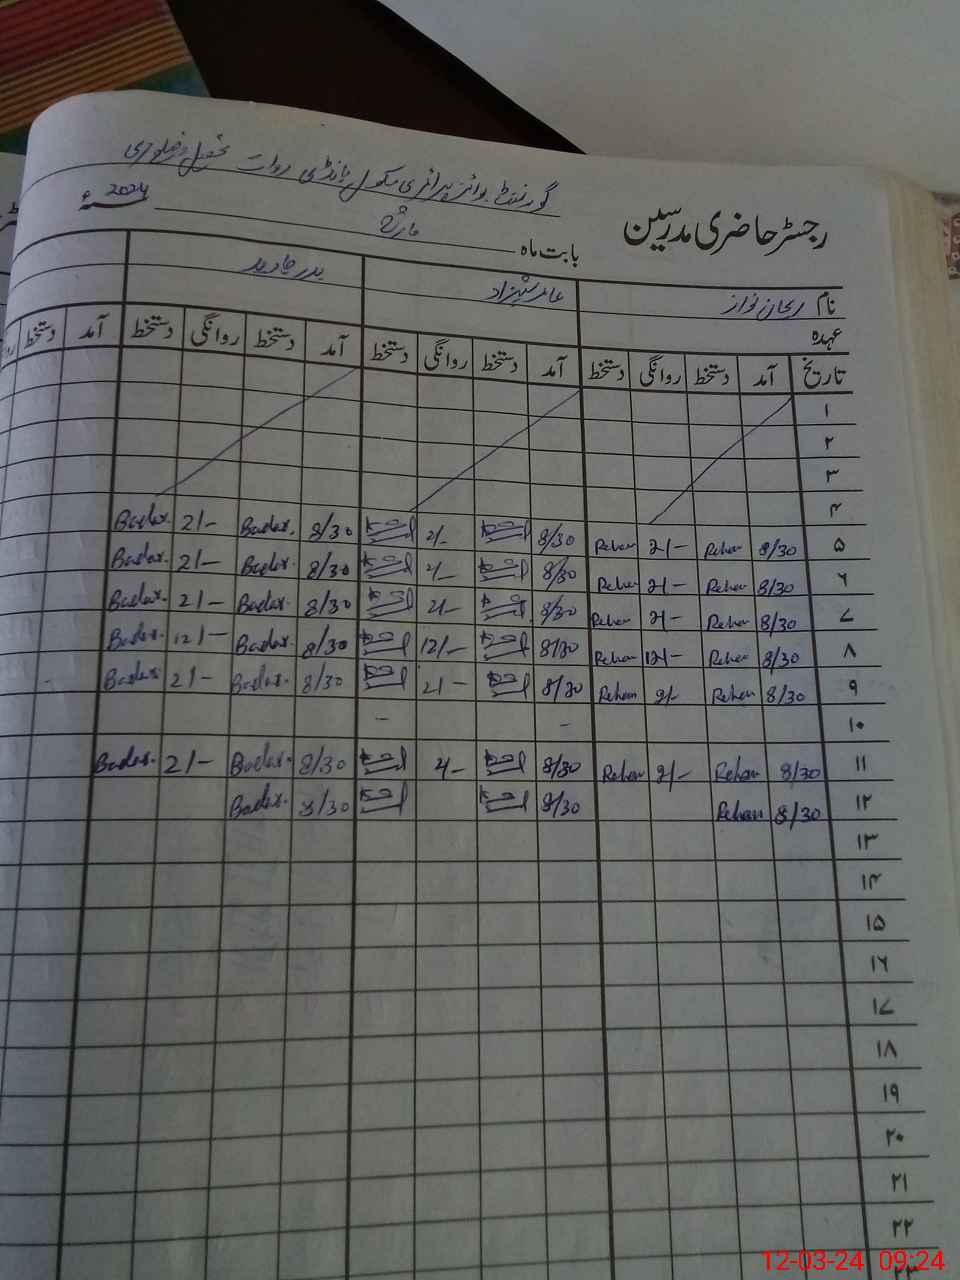 گورنمنٹ بوائز پرائمری سکول بانڈی روات تحصیل و ضلع مری
رجسٹر حاضری مدرسین بابت ماہ مارچ 2024ء
نام ریحان نواز عامر شہزاد بدر جاوید
عہدہ
تاریخ آمد دستخط روانگی دستخط آمد دستخط روانگی دستخط آمد دستخط روانگی دستخط آمد دستخط
۱
۲
۳
۴
۵ 8/30 Rehan 2/- Rehan 8/30 2/- 8/30 Badar. 2/- Badar.
۶ 8/30 Rehan 2/- Rehan 8/30 2/- 8/30 Badar. 2/- Badar.
۷ 8/30 Rehan 2/- Rehan 8/30 2/- 8/30 Badar. 2/- Badar.
۸ 8/30 Rehan 12/- Rehan 8/30 12/- 8/30 Badar. 12/- Badar.
۹ 8/30 Rehan 2/- Rehan 8/30 2/- 8/30 Badar. 2/- Badar.
۱۰ - -
۱۱ 8/30 Rehan 2/- Rehan 8/30 2/- 8/30 Badar. 2/- Badar.
۱۲ 8/30 Rehan 8/30 8/30 Badar.
۱۳
۱۴
۱۵
۱۶
۱۷
۱۸
۱۹
۲۰
۲۱
۲۲
۲۳
12-03-24 09:24